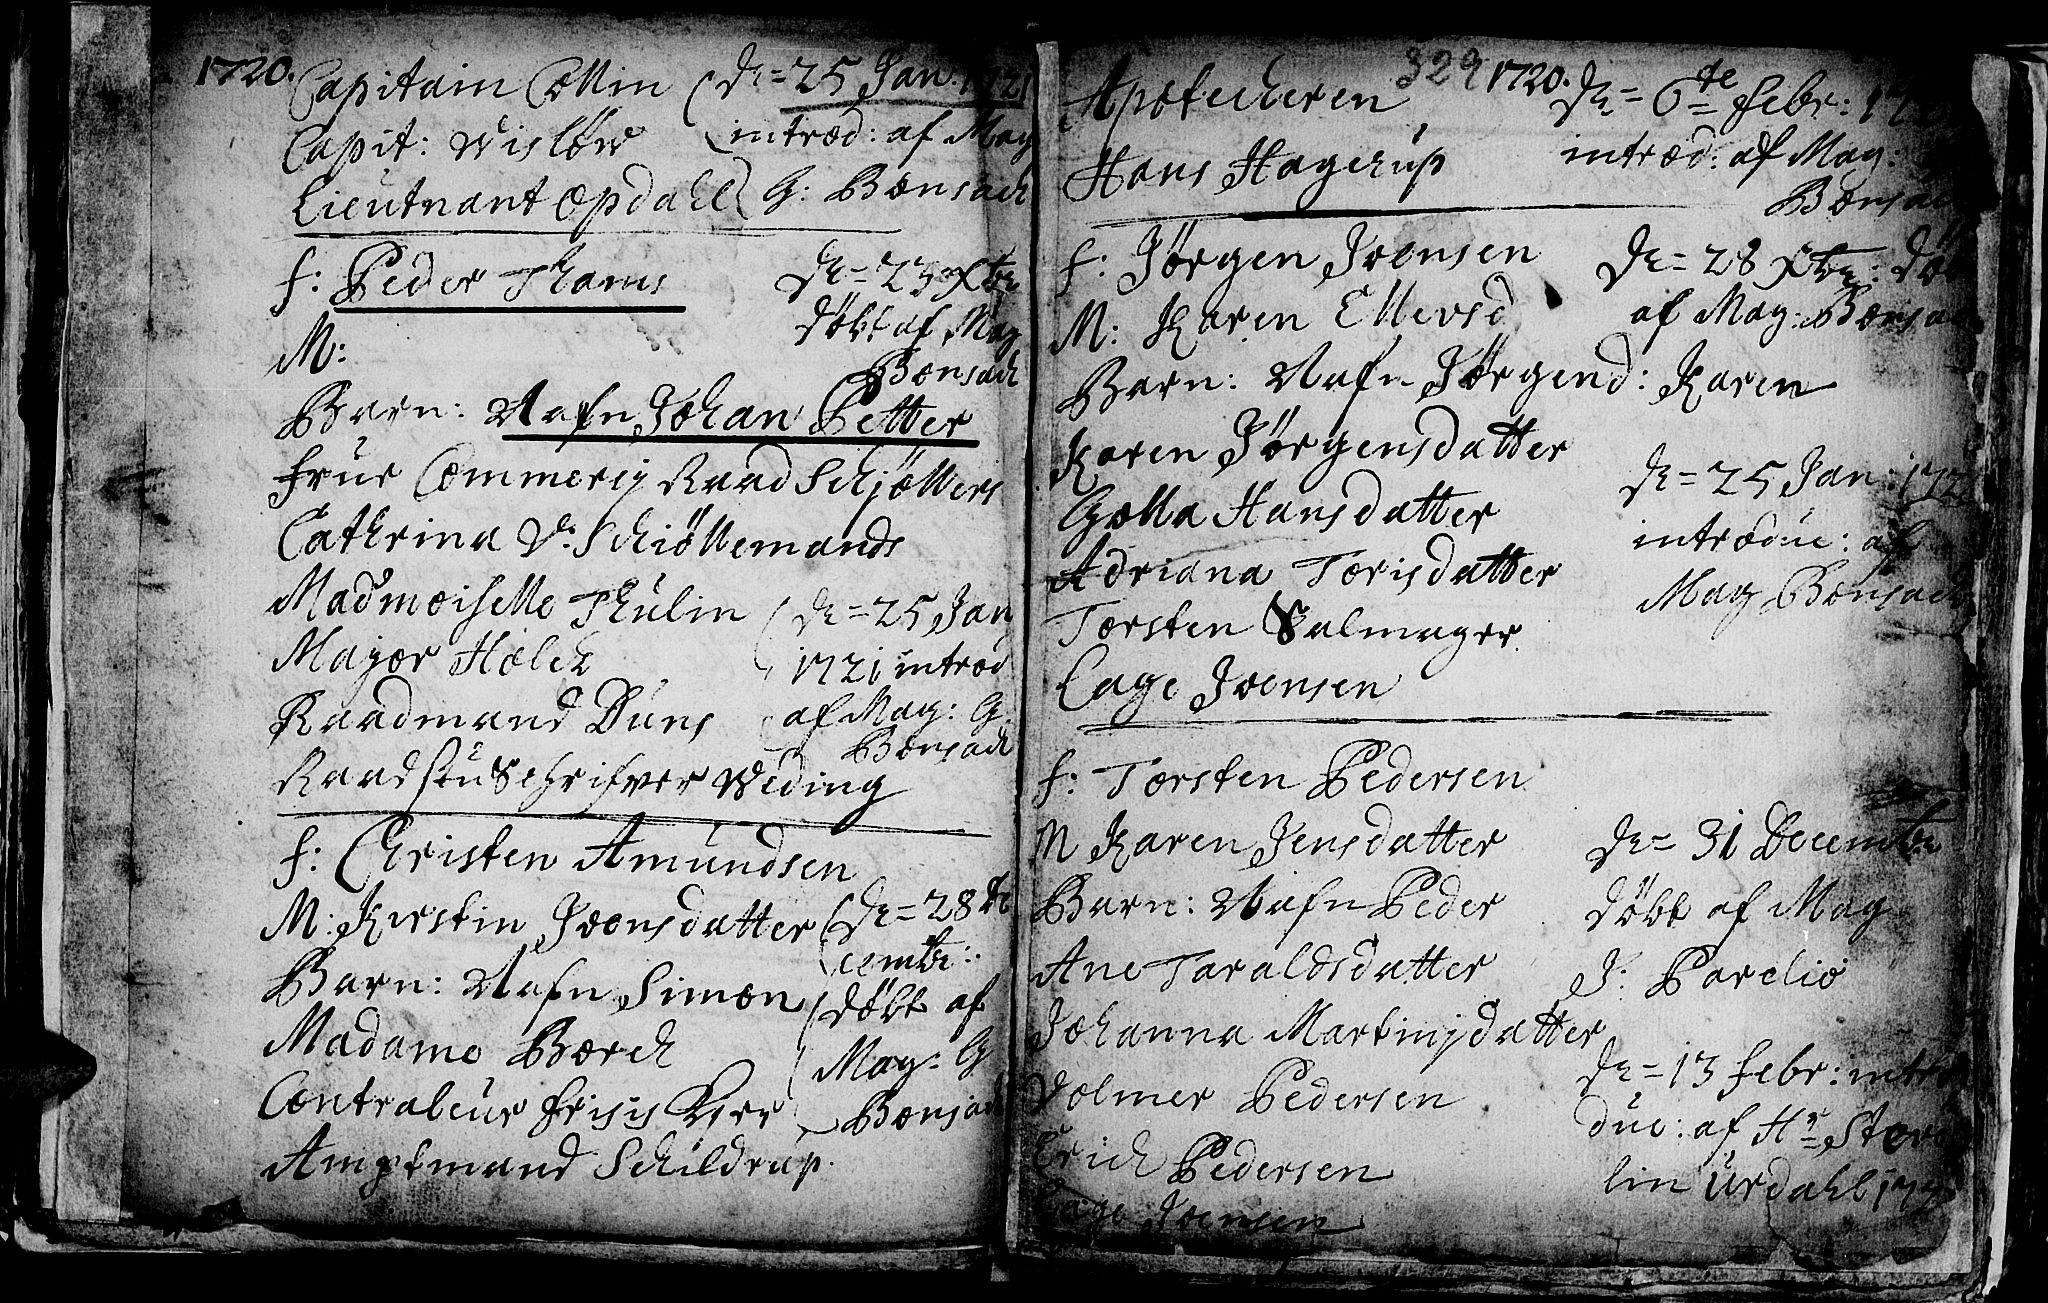 1720.
Capitain Collin
Capit: Wisløw
Lieutnant Opdahl
d: = 25 Jan. 1721
introd: af Mag
G: Bonsach
f: Peder Thams
M:
Barn: Nafn Johan Petter
d: = 23 Xbr
døbt af Mag
Bonsach
Frur Commercij Raad Schjøllers
Cathrina V: Schiøllemands
Madmoiselle Thulin
Major Holck
Raadmand Duns
Raadstu Schrifver Weding
d: = 25 Jan
1721 introd
af Mag: G.
Bonsach
f: Christen Amundsen
M: Kirstin Joensdatter
Barn: Nafn Simon
Madame Borch
Contraleur Frisis
Amptmand Schildrup.
d: = 28 de
cembr:
døbt af
Mag: G
Bonsach
329
1720.
Apotecheren
Hans Hagerup
d: = 6te Febr:
introd: af Mag:
Bonsach
f: Jørgen Joensen
M: Karen Ellevsd
Barn: Nafn Jørgend: Karen
d: = 28 Xbr: døbt
af Mag: Bonsach
Karen Jørgensdatter
Golla Hansdatter
Adriana Torisdatter
Torsten Salmager
Lage Joensen
d: = 25 Jan: 172
introduc: af
Mag Bonsach
f: Torsten Pedersen
M Karen Jensdatter
Barn: Nafn Peder
Ane Taraldsdatter
Johanna Martinjdatter
Volmer Pedersen
Erich Pedersen
Lage Joensen
d: = 31 Decembr
døbt af Mag
J: Parelio
d: = 13 Febr: intro
duc: af Hr Stor
lin Urdahl 172